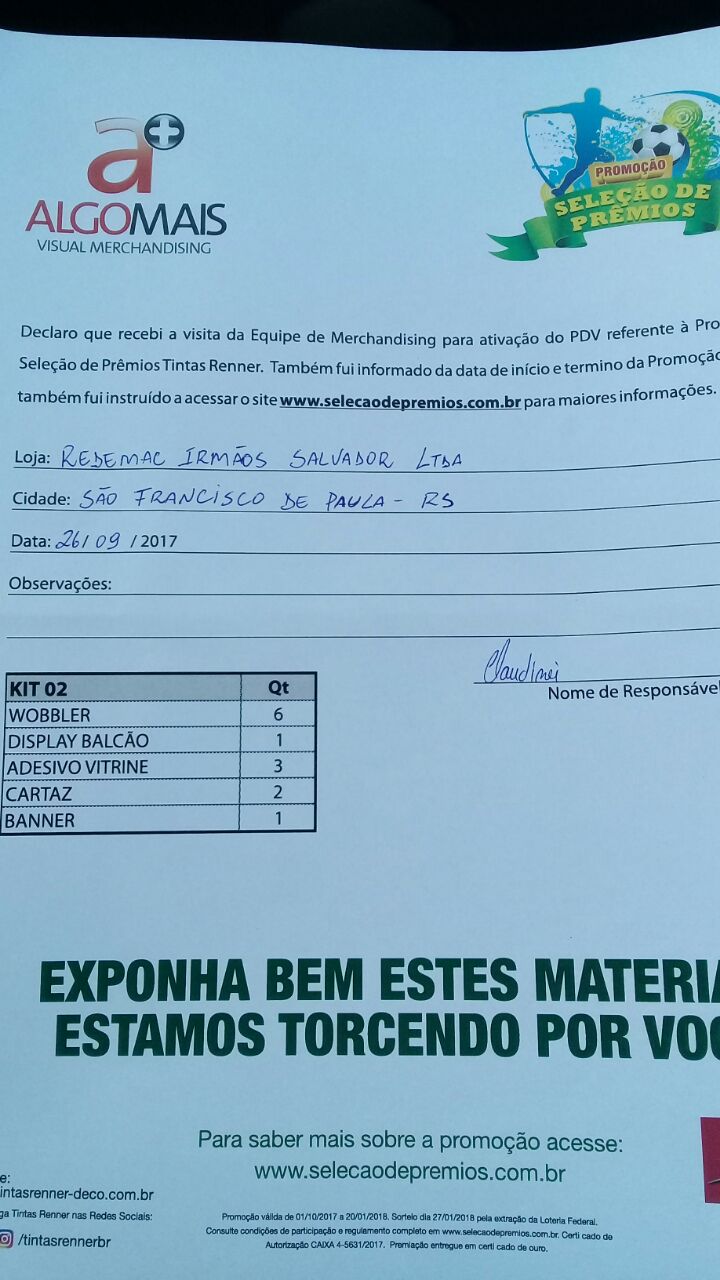 a+
ALGOMAIS
VISUAL MERCHANDISING
PROMOÇÃO
SELEÇÃO DE
PRÊMIOS
Declaro que recebi a visita da Equipe de Merchandising para ativação do PDV referente à Pro
Seleção de Prêmios Tintas Renner. Também fui informado da data de início e termino da Promoção
também fui instruído a acessar o site www.selecaodepremios.com.br para maiores informações.
Loja: REDEMAC IRMÃOS SALVADOR LTDA
Cidade: SÃO FRANCISCO DE PAULA - RS
Data: 26/09/2017
Observações:
Claudinei
Nome de Responsável
KIT 02 Qt
WOBBLER 6
DISPLAY BALCÃO 1
ADESIVO VITRINE 3
CARTAZ 2
BANNER 1
EXPONHA BEM ESTES MATERIA
ESTAMOS TORCENDO POR VOC
Para saber mais sobre a promoção acesse:
www.selecaodepremios.com.br
e:
intasrenner-deco.com.br
ga Tintas Renner nas Redes Sociais:
/tintasrennerbr
Promoção válida de 01/10/2017 a 20/01/2018. Sorteio dia 27/01/2018 pela extração da Loteria Federal.
Consulte condições de participação e regulamento completo em www.selecaodepremios.com.br. Certi cado de
Autorização CAIXA 4-5631/2017. Premiação entregue em certi cado de ouro.